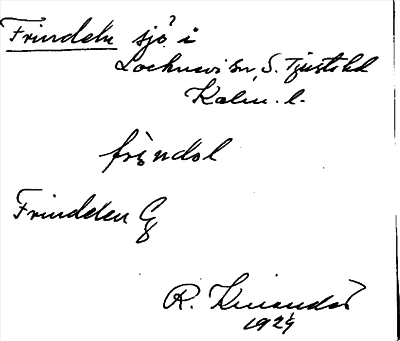 Frindeln sjö i
Locknevi sn, S. Tjusts hd
Kalm. l.
frindol
Frindelen G
R. Kinander
1929